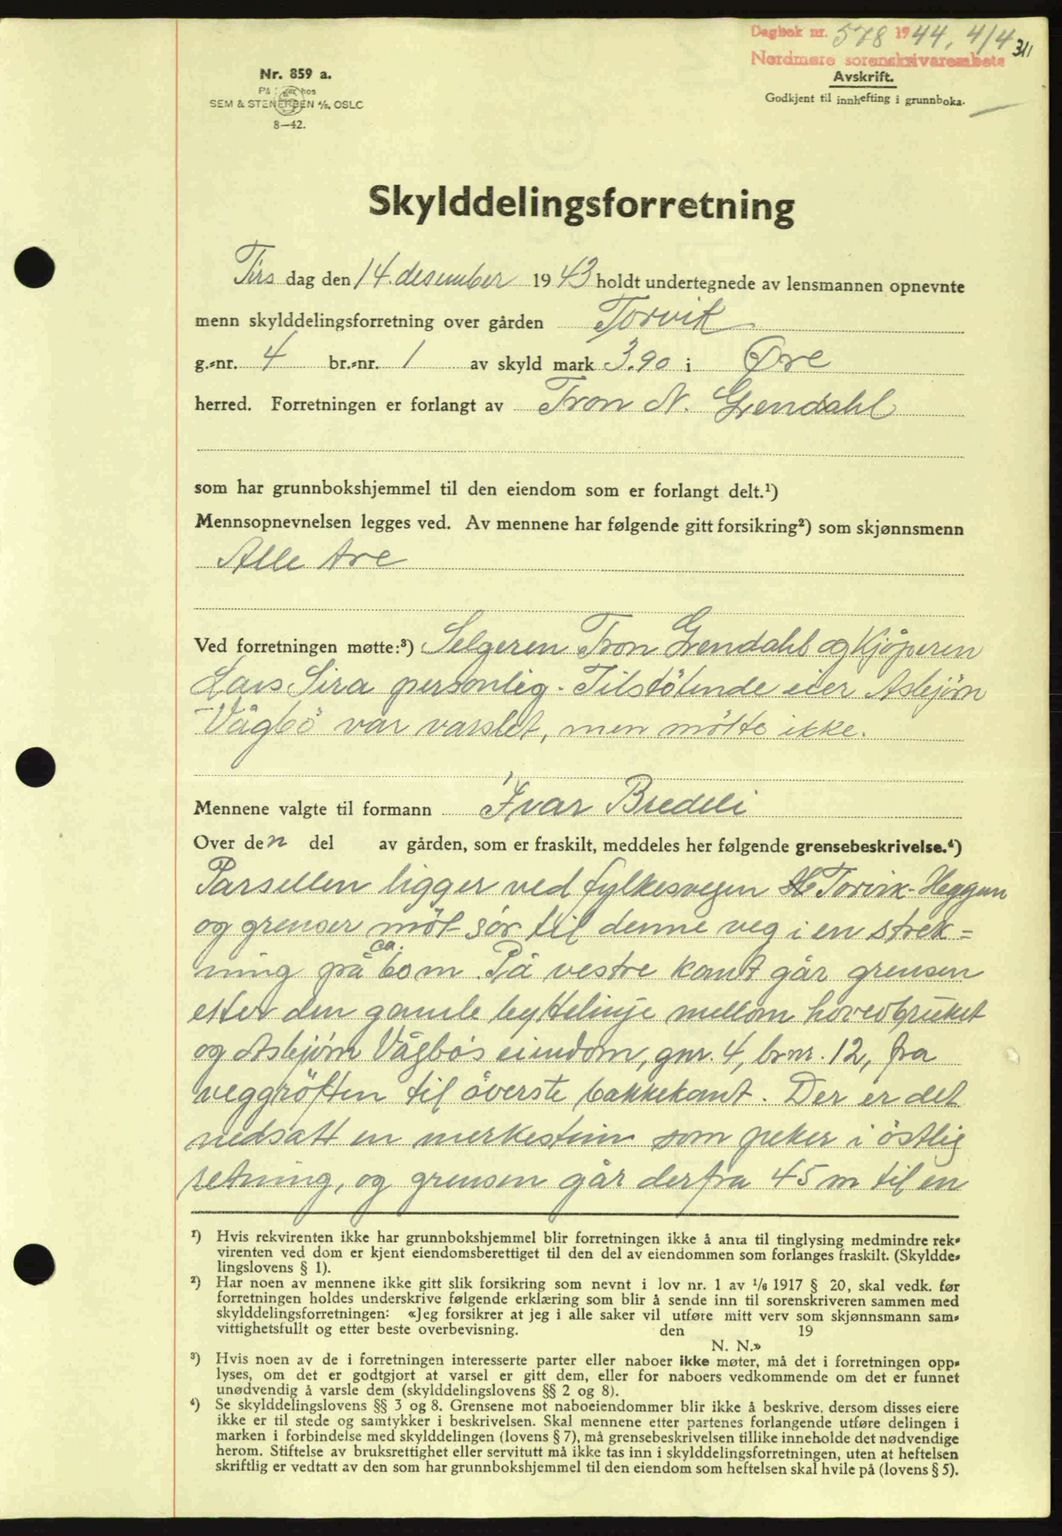 Dagbok nr. 578 1944, 4/4
311
Nordmøre sorenskrivarembete
Nr. 859 a.
Avskrift.
SEM & STENERSEN A/S, OSLO
Godkjent til innhefting i grunnboka.
8—42.
Skylddelingsforretning
Tirs dag den 14. desember 1943 holdt undertegnede av lensmannen opnevnte
menn skylddelingsforretning over gården Torvik
g.-nr. 4 br.-nr. 1 av skyld mark 3.90 i Øre
herred. Forretningen er forlangt av Tron N. Grendahl
som har grunnbokshjemmel til den eiendom som er forlangt delt.¹)
Mennsopnevnelsen legges ved. Av mennene har følgende gitt forsikring²) som skjønnsmenn
Alle tre
Ved forretningen møtte:³) Selgeren Tron Grendahl og Kjøperen
Lars Sira personlig. Tilstøtende eier Asbjørn
Vågbø var varslet, men møtte ikke.
Mennene valgte til formann Ivar Bredeli
Over den del av gården, som er fraskilt, meddeles her følgende grensebeskrivelse.⁴)
Parsellen ligger ved fylkesvegen Torvik-Heggem
og grenser mot sør til denne veg i en strek=
ning på ca. 60 m. På vestre kant går grensen
etter den gamle byttelinje mellom hovedbruket
og Asbjørn Vågbø's eiendom, gnr. 4, brnr. 12, fra
veggrøften til øverste bakkekant. Der er det
nedsatt en merkestein som peker i østlig
retning, og grensen går derfra 45 m til en
¹) Hvis rekvirenten ikke har grunnbokshjemmel blir forretningen ikke å anta til tinglysing medmindre rek-
virenten ved dom er kjent eiendomsberettiget til den del av eiendommen som forlanges fraskilt. (Skyldde-
lingslovens § 1).
²) Har noen av mennene ikke gitt slik forsikring som nevnt i lov nr. 1 av 1/6 1917 § 20, skal vedk. før
forretningen holdes underskrive følgende erklæring som blir å sende inn til sorenskriveren sammen med
skylddelingsforretningen: «Jeg forsikrer at jeg i alle saker vil utføre mitt verv som skjønnsmann sam-
vittighetsfullt og etter beste overbevisning. den 19
N. N.»
³) Hvis noen av de i forretningen interesserte parter eller naboer ikke møter, må det i forretningen opp-
lyses, om det er godtgjort at varsel er gitt dem, eller for naboers vedkommende om det er funnet
unødvendig å varsle dem (skylddelingslovens §§ 2 og 8).
⁴) Se skylddelingslovens §§ 3 og 8. Grensene mot naboeiendommer blir ikke å beskrive, dersom disses eiere
ikke er til stede og samtykker i beskrivelsen. Skal mennene etter partenes forlangende utføre delingen i
marken i forbindelse med skylddelingen (lovens § 7), må grensebeskrivelsen tillike inneholde det nødvendige
herom. Stiftelse av bruksrettighet eller servitutt må ikke tas inn i skylddelingsforretningen, uten at heftelsen
skriftlig er vedtatt av den som har grunnbokshjemmel til den eiendom som heftelsen skal hvile på (lovens § 5).